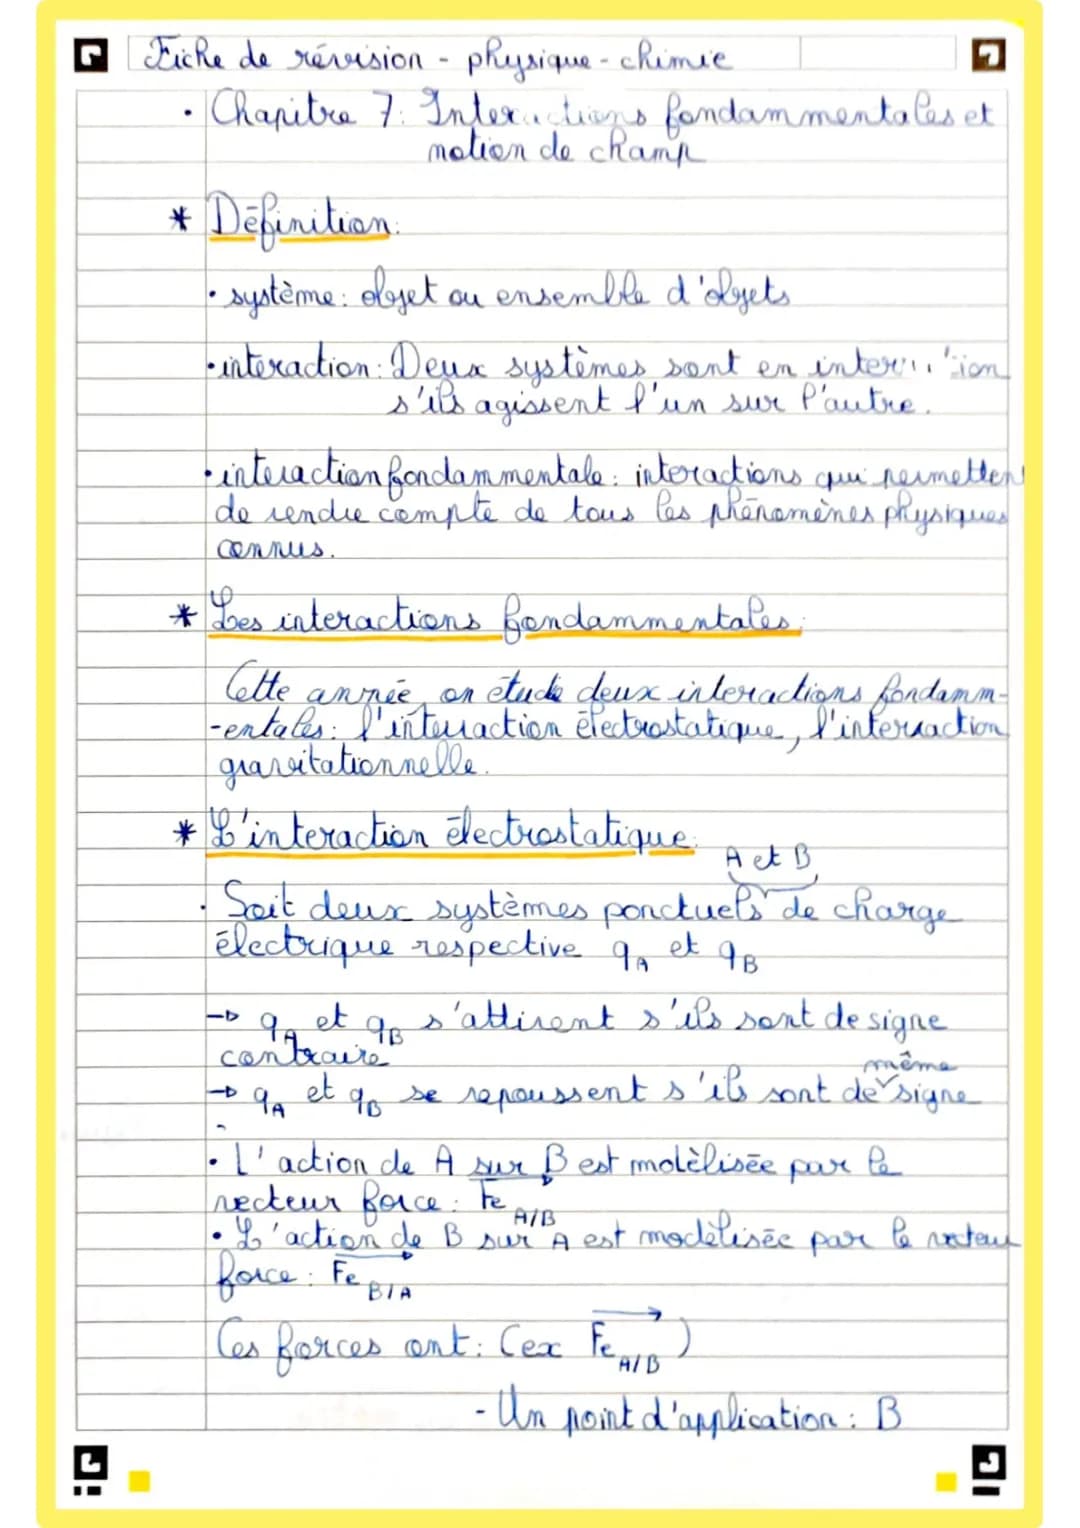 Fiche de révision - physique - chimie
• Chapitre 7: Interactions fondammentales et
notion de champ
* Définition:
• système: objet ou ensemble d'objets
• interaction: Deux systèmes sont en
s'ils agissent l'un sur l'autre.
• interaction fondammentale: interactions qui permettent
de rendre compte de tous les phénomènes physiques
connus.
* Les interactions fondammentales:
Cette année, on étude deux interactions fondamm-
-entales: l'interraction électrostatique, l'interraction
gravitationnelle.
* L'interaction électrostatique:
A et B
• Soit deux systèmes ponctuels de charge
électrique respective qA et qB
→ qA et qB s'attirent s'ils sont de signe
contraire
même
→ qA et qB se repoussent s'ils sont de signe
• L'action de A sur B est modèlisée par le
vecteur force: Fe A/B
• L'action de B sur A est modèlisée par le vecteur
force: Fe B/A
Ces forces ont: (ex Fe A/B)
- Un point d'application: B